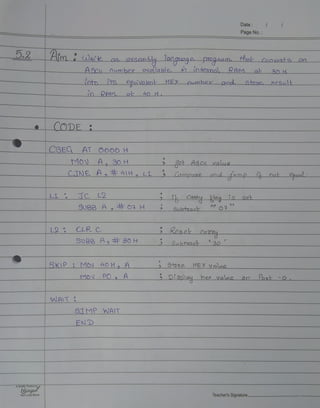 Date: / /
Page No.:
5.2 Aim : Write an assembly language program that converts an
ASCII number available in internal RAM at 30 H
into its equivalent HEX number and store result
in RAM at 40 H.
• CODE :
CSEG AT 0000 H
MOV A, 30H ; get ASCII value
CJNE A, # 41H, L1 ; Compare and jump if not equal
L1 : JC L2 ; If carry flag is set
SUBB A, # 07 H ; Subtract "07"
L2 : CLR C ; Reset carry
SUBB A, # 30H ; Subtract '30'
SKIP : MOV 40H, A ; Store HEX value
MOV P0, A ; Display hex value on Port -0.
WAIT :
SJMP WAIT
END
Teacher's Signature